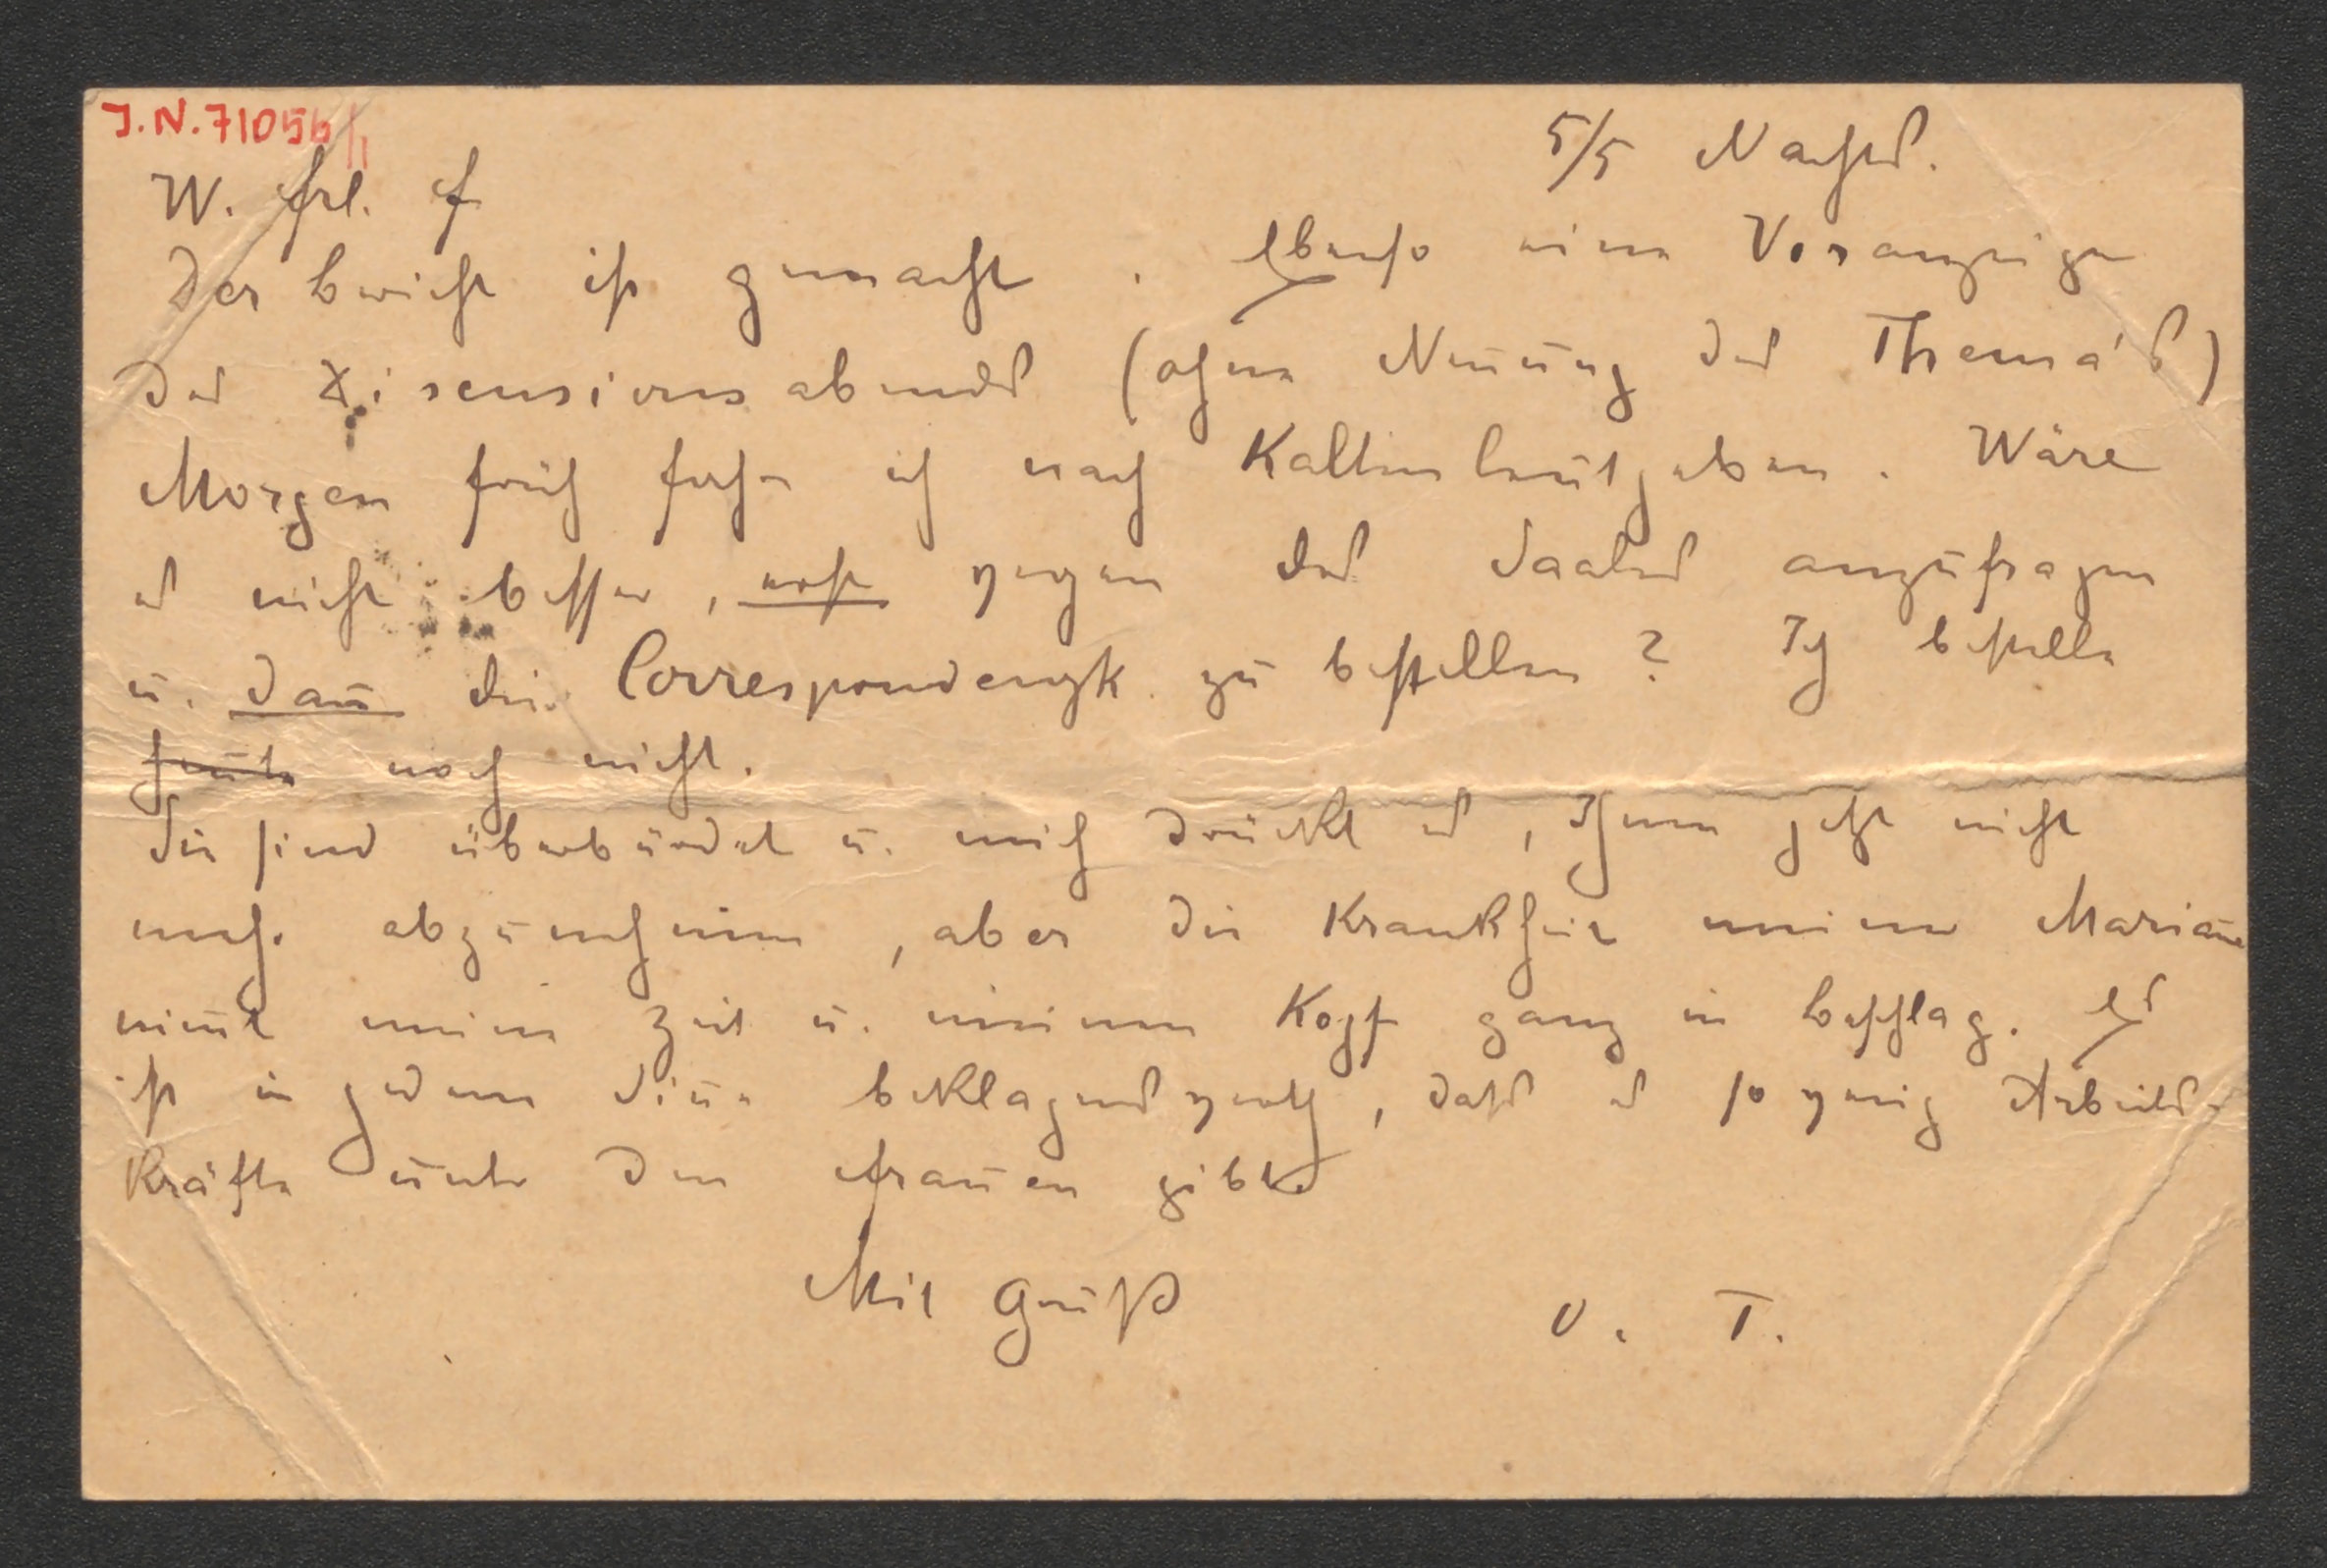 J.N. 71056/1
5/5 Nachts.
W. Frl. F
Der Bericht ist gemacht. Ebenso eine Voranzeige
des Discussionsabends (ohne Nennung des Thema's)
Morgen früh fahre ich nach Kaltenleutgeben. Wäre
es nicht besser, erst wegen des Saales anzufragen
u. dann die Correspondenzk. zu bestellen? Ich bestelle
heute noch nicht.
Sie sind überbürdet u. mich drückt es, Ihnen jetzt nicht
mehr abzunehmen, aber die Krankheit meiner Marianne
nimmt meine Zeit u. meinen Kopf ganz in Beschlag. Es
ist in jedem Sinne beklagenswerth, dass es so wenig Arbeits-
kräfte unter den Frauen gibt.
Mit Gruß
V. T.